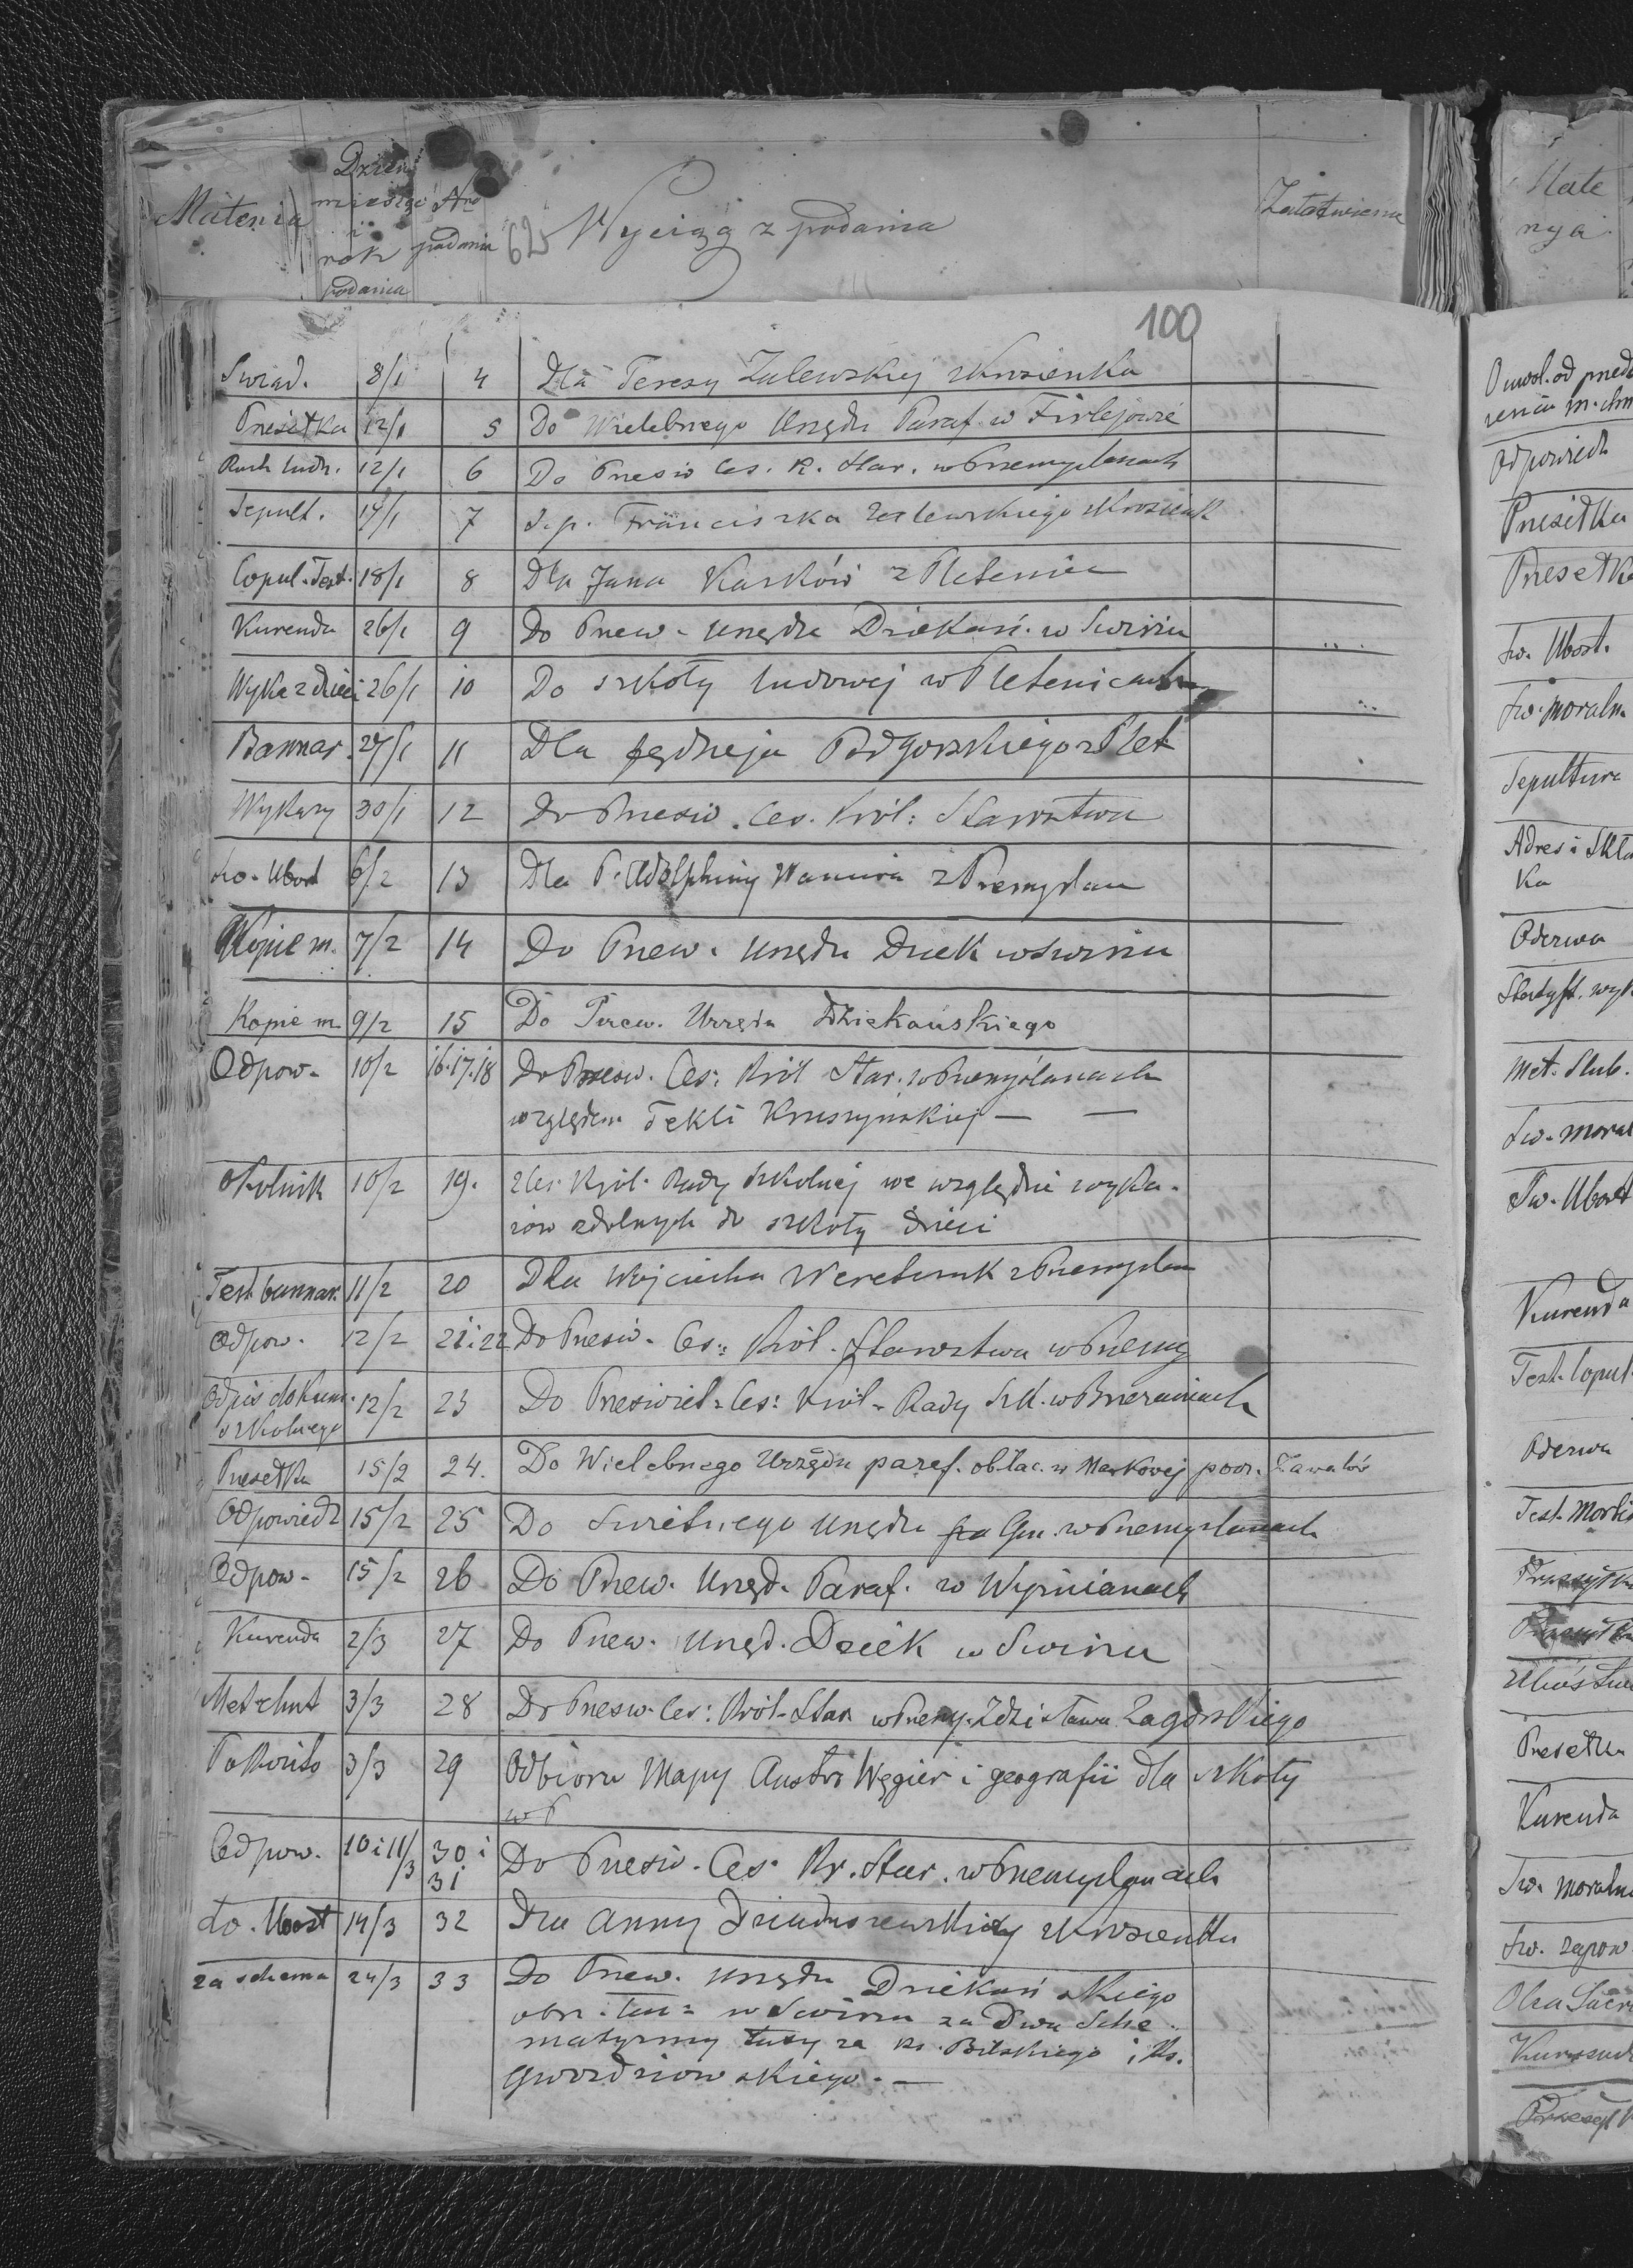 Materia
Dzień
miesiąc
i
rok
podania
Nro
podania
Wyciąg z podania
Załatwienie
100
Swiad. 8/1 4 Dla Teresy Zalewskiej z Krosienka
Przesełka 12/1 5 Do Wielebnego Urzędu Paraf. w Firlejowie
Ruch ludn. 12/1 6 Do Przesw Ces. K. Star. w Przemyslanach
Sepult. 17/1 7 S.p. Franciszka Zalewskiego z Krosienk
Copul. Test. 18/1 8 Dla Jana Karków z Pletenice
Kurenda 26/1 9 Do Przew. Urzędu Dziekań. w Swirzu
Wykaz dzieci 26/1 10 Do szkoły ludowej w Pletenicach
Bannar. 27/1 11 Dla Podgorskiego z Plet
Wykazy 30/1 12 Do Przesw. Ces. Król: Starostwa
Sw. Ubost 6/2 13 Dla P. Adolphiny z Przemyslan
Kopie m. 7/2 14 Do Przew. Urzędu Dziek w Swirzu
Kopie m 9/2 15 Do Przew. Urzędu Dziekańskiego
Odpow. 10/2 16.17.18 Do Przesw. Ces: Król Star. w Przemyślanach
względem Tekli Kruszyńskiej —
Okolnik 10/2 19. z Ces. Król. Rady szkolnej we względzie wyka-
zów zdolnych do szkoły dzieci
Test bannar. 11/2 20 Dla Wojciecha z Przemyslan
Odpow. 12/2 21i22 Do Przesw. Ces: Król. Starostwa w Przemy
Odpis dokum. 12/2 23 Do Przeswiet. Ces: Król. Rady Szk. w Brzezanach
szkolnego
Przesełka 15/2 24. Do Wielebnego Urzędu paraf. ob. łac. w Markowej pocz. Zawałów
Odpowiedz 15/2 25 Do Swietnego Urzędu Gm. w Przemyslanach
Odpow. 15/2 26 Do Przew. Urzęd. Paraf. w Wyżnianach
Kurenda 2/3 27 Do Przew. Urzęd. Dziek w Swirzu
Met chrzt 3/3 28 Do Przesw. Ces: Król. Star w Przemy. Zdzisława Zagorskiego
Pokwito 3/3 29 Odbioru Mapy Austro Węgier i geografii dla szkoły
w P
Odpow. 10 i 11/3 30 i 31 Do Przesw. Ces. Kr. Star. w Przemyslanach
Sw. Ubost 14/3 32 Dla Anny z Krosienka
za schema 24/3 33 Do Przew. Urzędu Dziekań skiego
obrz. łac: w Swirzu za Dwa Sche
matyzmy za Ks. Bilskiego i Ks.
Gwozdziowskiego. —
Mate
nya
Odpowiedz
Przesełka
Przesełk
Sw. Ubost.
Sw. moraln.
Sepultura
Adres i Skła
Ka
Oderwa
Statyst. wyk
Met. Slub.
Sw. moral
Sw. Ubost
Kurenda
Test. Copul.
Oderwa
Przesełka
Kurenda
Sw. moraln
Sw. zapow